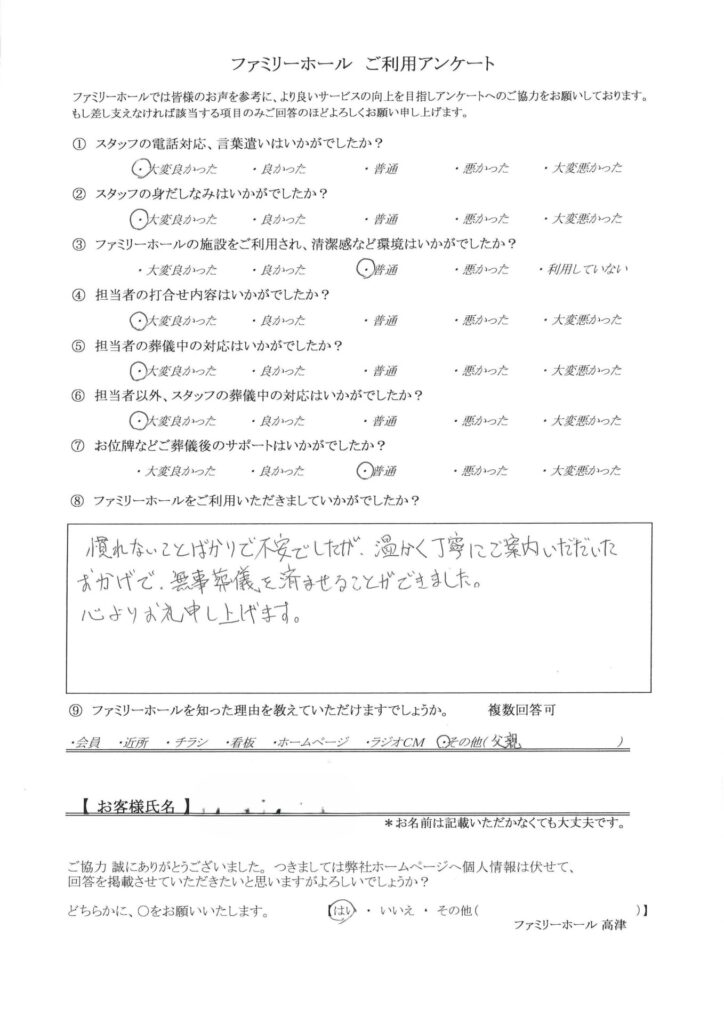 ファミリーホール ご利用アンケート
ファミリーホールでは皆様のお声を参考に、より良いサービスの向上を目指しアンケートへのご協力をお願いしております。
もし差し支えなければ該当する項目のみご回答のほどよろしくお願い申し上げます。
① スタッフの電話対応、言葉遣いはいかがでしたか？
・大変良かった ・良かった ・普通 ・悪かった ・大変悪かった
② スタッフの身だしなみはいかがでしたか？
・大変良かった ・良かった ・普通 ・悪かった ・大変悪かった
③ ファミリーホールの施設をご利用され、清潔感など環境はいかがでしたか？
・大変良かった ・良かった ・普通 ・悪かった ・利用していない
④ 担当者の打合せ内容はいかがでしたか？
・大変良かった ・良かった ・普通 ・悪かった ・大変悪かった
⑤ 担当者の葬儀中の対応はいかがでしたか？
・大変良かった ・良かった ・普通 ・悪かった ・大変悪かった
⑥ 担当者以外、スタッフの葬儀中の対応はいかがでしたか？
・大変良かった ・良かった ・普通 ・悪かった ・大変悪かった
⑦ お位牌などご葬儀後のサポートはいかがでしたか？
・大変良かった ・良かった ・普通 ・悪かった ・大変悪かった
⑧ ファミリーホールをご利用いただきましていかがでしたか？
慣れないことばかりで不安でしたが、温かく丁寧にご案内いただいた
おかげで、無事葬儀を済ませることができました。
心よりお礼申し上げます。
⑨ ファミリーホールを知った理由を教えていただけますでしょうか。 複数回答可
・会員 ・近所 ・チラシ ・看板 ・ホームページ ・ラジオCM ・その他(父親 )
【 お客様氏名 】
＊お名前は記載いただかなくても大丈夫です。
ご協力 誠にありがとうございました。つきましては弊社ホームページへ個人情報は伏せて、
回答を掲載させていただきたいと思いますがよろしいでしょうか？
どちらかに、〇をお願いいたします。 【はい ・ いいえ ・ その他( )】
ファミリーホール 高津